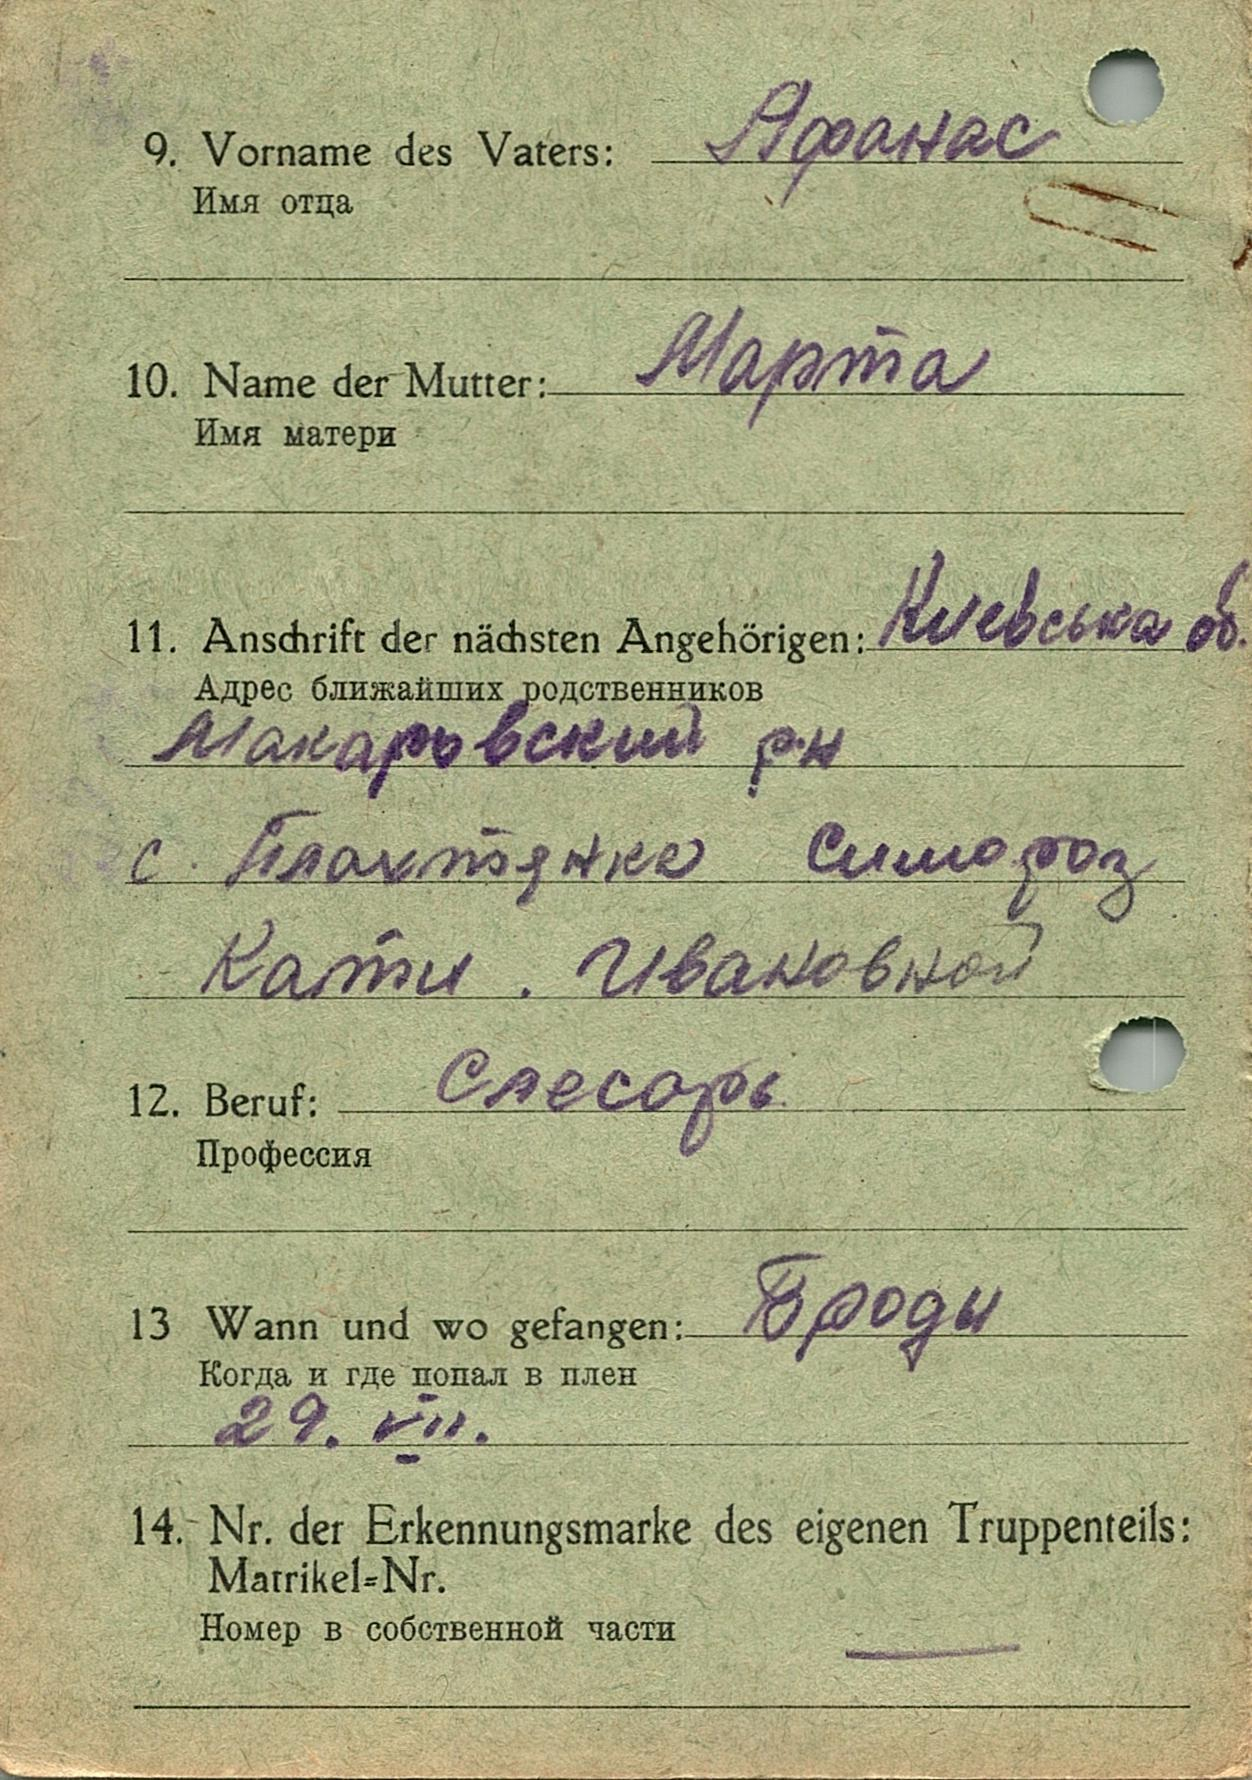 9. Vorname des Vaters: Афанас
Имя отца
10. Name der Mutter: Марта
Имя матери
11. Anschrift der nächsten Angehörigen: Киевська об.
Адрес ближайших родственников
Макаровский р-н
с. Плахтянка Симороз
Кати. Ивановной
12. Beruf: Слесарь
Профессия
13 Wann und wo gefangen: Броды
Когда и где попал в плен
29. VII.
14. Nr. der Erkennungsmarke des eigenen Truppenteils:
Matrikel-Nr.
Номер в собственной части —